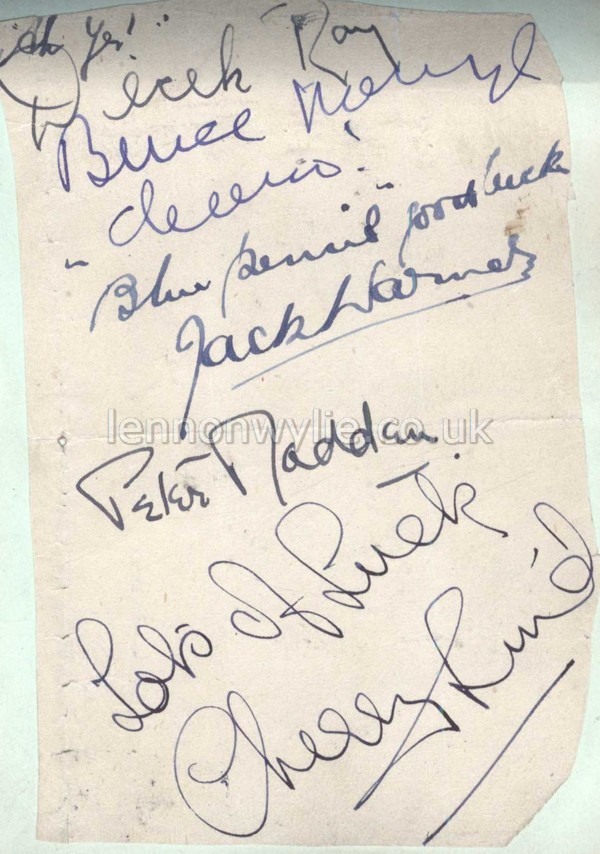 "oh yes!"
Derek Roy
Bruce
cheerio!
"Blue pencil" good luck
Jack Warner
lennonwylie.co.uk
Peter Madden.
Lots of Luck
Cherry Lind